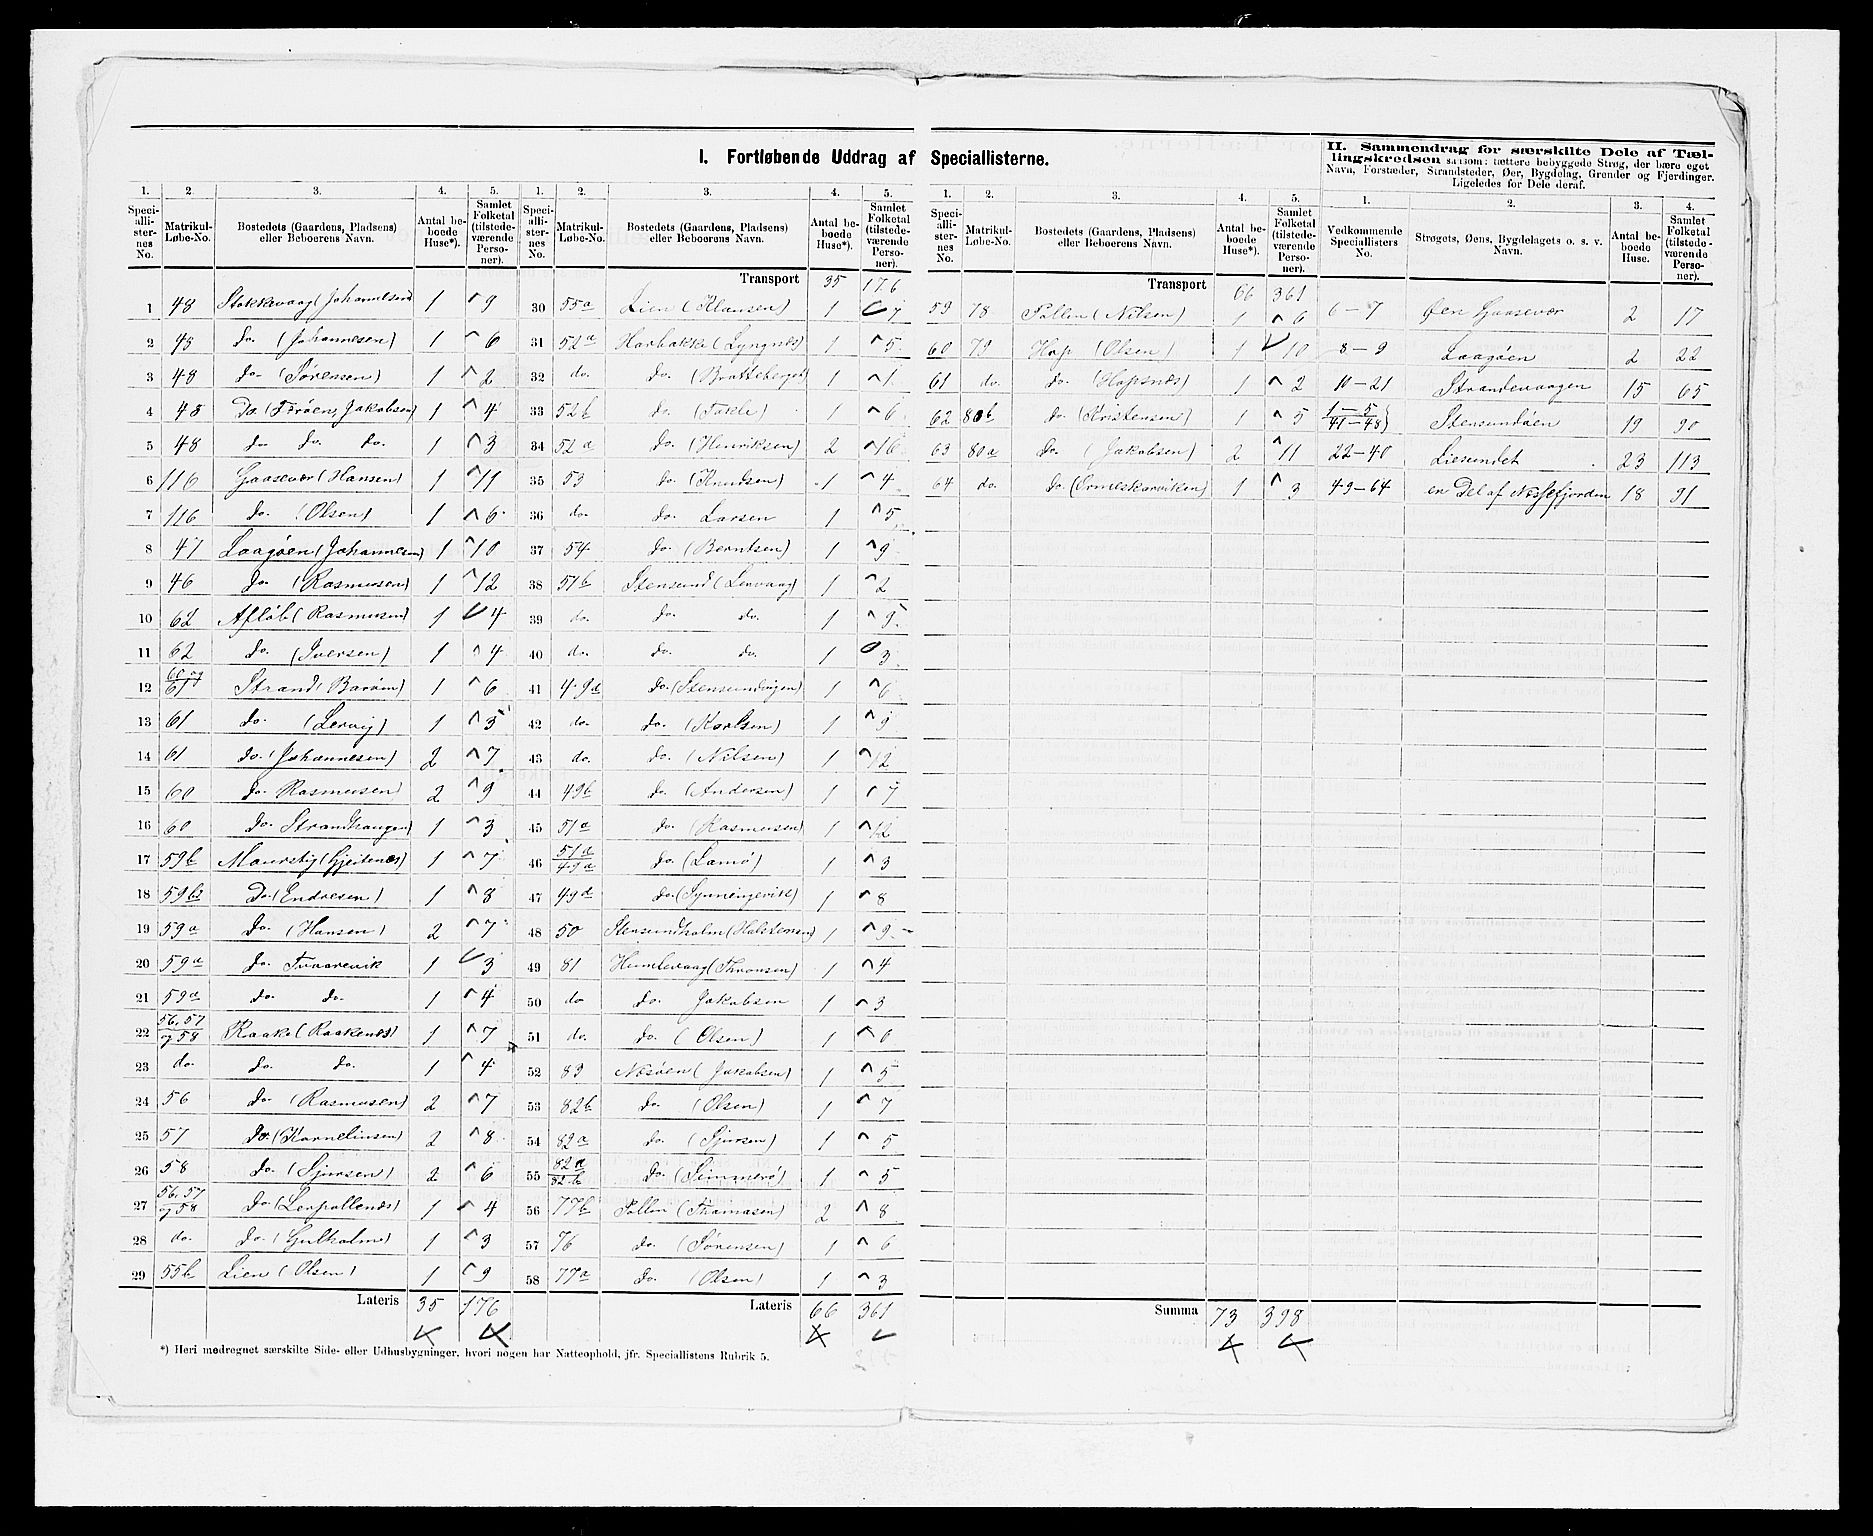 I. Fortløbende Uddrag af Speciallisterne.
II. Sammendrag for særskilte Dele af Tællingskredsen saasom: tættere bebyggede Strøg, der bære eget
Navn, Forstæder, Strandsteder, Øer, Bygdelag, Grender og Fjerdinger.
Ligeledes for Dele deraf.
1. 2. 3. 4. 5. 1. 2. 3. 4. 5. 1. 2. 3. 4. 5. 1. 2. 3. 4.
Speciallisternes No. Matrikul-Løbe-No. Bostedets (Gaardens, Pladsens) eller Beboerens Navn. Antal beboede Huse*). Samlet Folketal (tilstedeværende Personer).
Speciallisternes No. Matrikul-Løbe-No. Bostedets (Gaardens, Pladsens) eller Beboerens Navn. Antal beboede Huse*). Samlet Folketal (tilstedeværende Personer).
Speciallisternes No. Matrikul-Løbe-No. Bostedets (Gaardens, Pladsens) eller Beboerens Navn. Antal beboede Huse*). Samlet Folketal (tilstedeværende Personer).
Vedkommende Speciallisters No. Strøgets, Øens, Bygdelagets o. s. v. Navn. Antal beboede Huse. Samlet Folketal (tilstedeværende Personer).
1 48 Stokkevaag (Johannesen) 1 9
2 48 do. (Johannesen) 1 6
3 48 do. (Sørensen) 1 2
4 48 Do. (Færøen, Jakobsen) 1 4
5 48 do. do. do. 1 3
6 116 Gaasevær (Hansen) 1 11
7 116 do. (Olsen) 1 6
8 47 Laagøen (Johannesen) 1 10
9 46 do. (Rasmusen) 1 12
10 62 Afløb (Rasmusen) 1 4
11 62 do. (Iversen) 1 4
12 60 og 61 Strand (Barøen) 1 6
13 61 do. (Lervig) 1 5
14 61 do. (Johannesen) 2 7
15 60 do. Rasmusen) 2 9
16 60 do. Strandhaugen) 1 3
17 59b Maurstig (Gjeitenæs) 1 7
18 59b2 Do. (Endresen) 1 8
19 59a do. (Hansen) 2 7
20 59a do. Tværevik 1 3
21 59a do. do. 1 4
22 56, 57 og 58 Raake (Raakenæs) 1 7
23 do. do. do. 1 4
24 56 do. (Rasmusen) 2 7
25 57 do. (Kornelinsen) 2 8
26 58 do. (Sjursen) 2 6
27 56, 57 og 58 do. (Lerpollenæs) 1 4
28 do. do. (Gulholm) 1 3
29 55b Lien (Olsen) 1 9
Lateris 35 176
Transport 35 176
30 55a Lien (Klausen) 1 7
31 52a Harbakke (Lyngnes) 1 5
32 do. do. (Bratteberget) 1 1
33 52b do. (Takle) 1 6
34 52a do. (Henriksen) 2 16
35 53 do. (Knudsen) 1 4
36 do. do. Larsen 1 5
37 54 do. (Berntsen) 1 9
38 51b Stensund (Lervaag) 1 2
39 do. do. do. 1 9
40 do. do. do. 1 3
41 49a do. (Stensundvigen) 1 6
42 do. do. (Karlsen) 1 9
43 do. do. (Nilsen) 1 12
44 49b do. (Andersen) 1 7
45 51a do. (Rasmusen) 1 12
46 51a 49a do. (Lamø) 1 3
47 49a do. (Synningevik) 1 8
48 50 Stensundholm (Halstensen) 1 9
49 81 Humlevaag (Thronsen) 1 4
50 do do. Jakobsen 1 3
51 do. do. (Olsen) 1 6
52 83 Nesøen (Jakobsen) 1 5
53 82b do. (Olsen) 1 7
54 82a do. (Sjursen) 1 5
55 82a 82b do. (Simmerø) 1 5
56 77b Pollen (Thomasen) 2 8
57 76 do. (Sørensen) 1 6
58 77a do. (Olsen) 1 3
Lateris 66 361
Transport 66 361
59 78 Pollen (Nilsen) 1 6
60 79 Hop (Olsen) 1 10
61 do. do. (Hopsnæs) 1 2
62 80b do. (Kristensen) 1 5
63 80a do. (Jakobsen) 2 11
64 do. do. (Ormeskarviken) 1 3
Summa 73 398
6-7 Øen Gaasevær 2 17
8-9 Laagøen 2 22
10-21 Strandevaagen 15 65
1-5 41-48} Stensundøen 19 90
22-40 Liesundet 23 113
49-64 en Del af Nessefjorden 18 91
*) Heri medregnet særskilte Side- eller Udhusbygninger, hvori nogen har Natteophold, jfr. Speciallistens Rubrik 5.